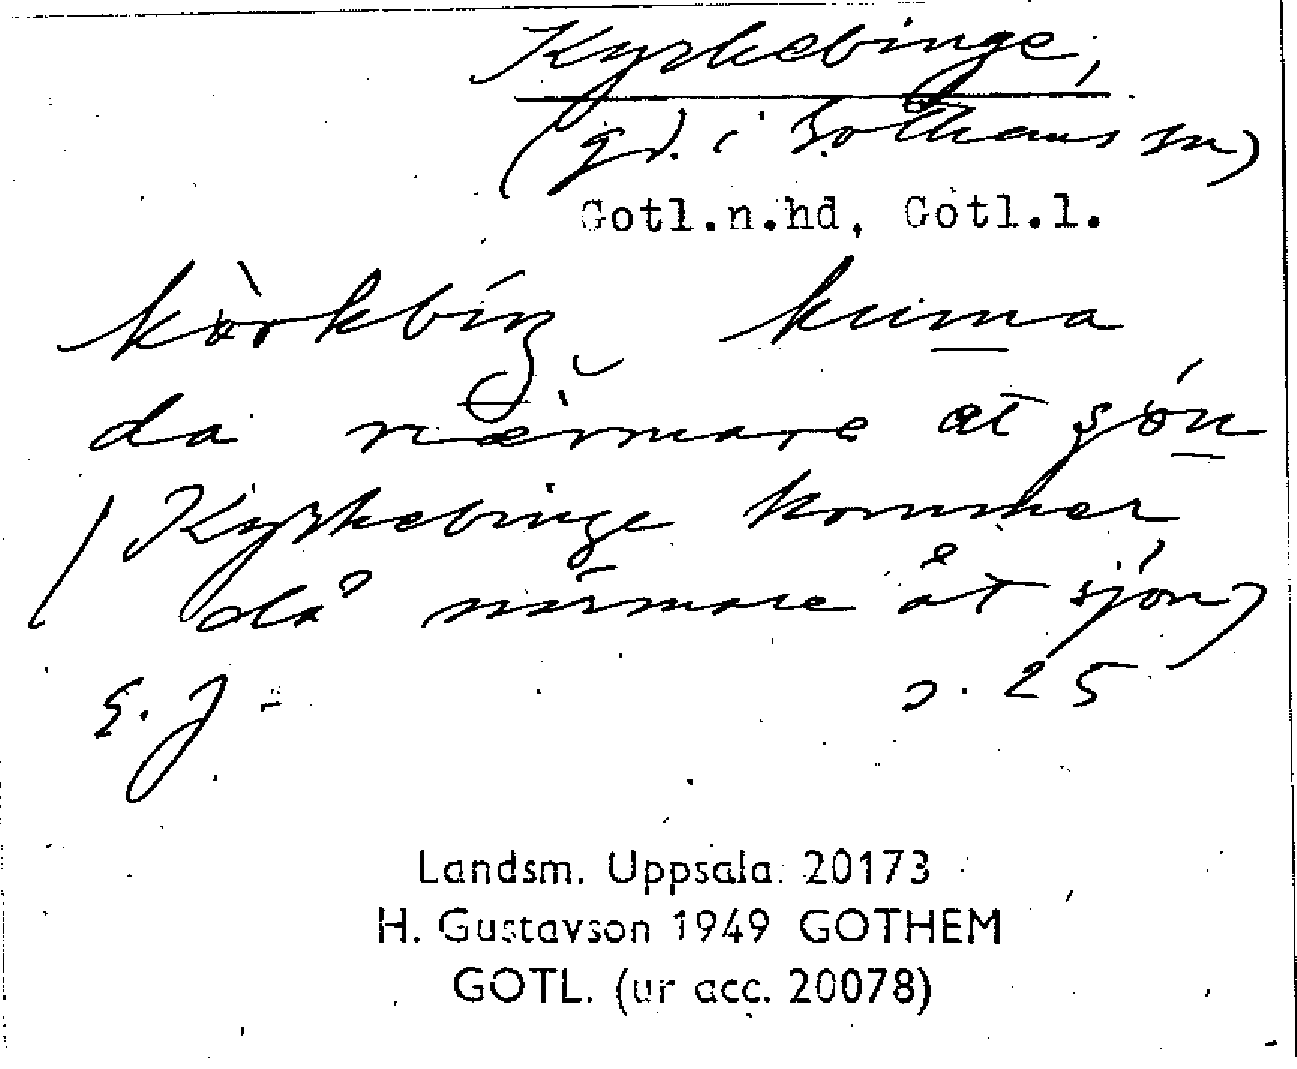 Kyrkebinge,
(gd. i Gothems sn)
Gotl.n.hd, Gotl.l.
kòrkbing kuma
da nærmare at sjón
(Kyrkebinge kommer
då närmare åt sjön)
E. J. s. 25
Landsm. Uppsala: 20173
H. Gustavson 1949 GOTHEM
GOTL. (ur acc. 20078)